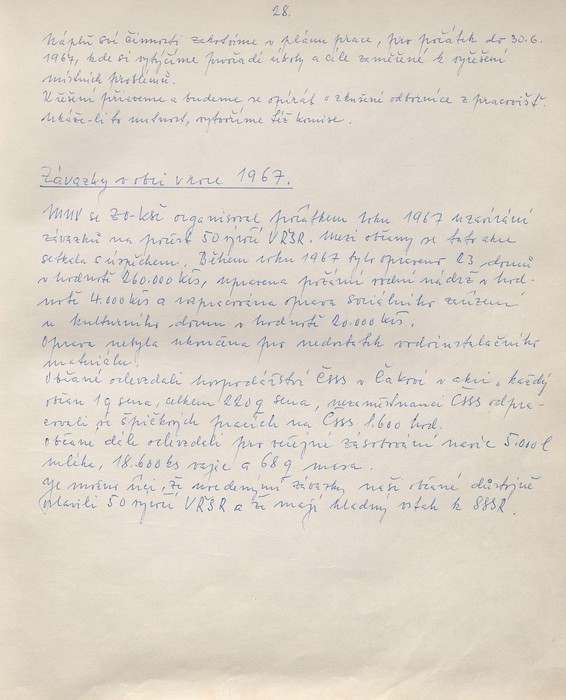 28.
Náplň své činnosti zakotvíme v plánu práce, pro počátek do 30.6.
1967, kde si vytyčíme pořadí úkoly a cíle zaměřené k vyřešení
místních problémů.
K řešení přizveme a budeme se opírat o zkušené odborníce z pracovišť.
Ukáže-li to nutnost, vytvoříme též komise.
Závazky v obci v roce 1967.
MNV se ZO-KSČ organisoval počátkem roku 1967 uzavírání
závazků na počest 50 výročí VŘSR. Mezi občany se tato akce
setkala s úspěchem. Během roku 1967 bylo opraveno 23 domů
v hodnotě 260.000 Kčs, upravena požární vodní nádrž v hod-
notě 4.000 kčs a rozpracována oprava sociálního zařízení
v kulturního domu v hodnotě 20.000 kčs.
Oprava nebyla ukončena pro nedostatek vodoinstalačního
materiálu.
Občané odevzdali hospodářství ČSSS v Čakově v akci "každý
občan 1q sena, celkem 220q sena, nezaměstnanci ČSSS odpra-
covali ve špičkových pracích na ČSSS 1.600 hod.
občané dále odevzdali pro veřejné zásobování navíc 5.000 l
mléka, 18.600 ks vajec a 68 q masa.
Je možno říci, že uvedenými závazky naši občané důstojně
oslavili 50 výročí VŘSR a že mají kladný vztah k SSSR.